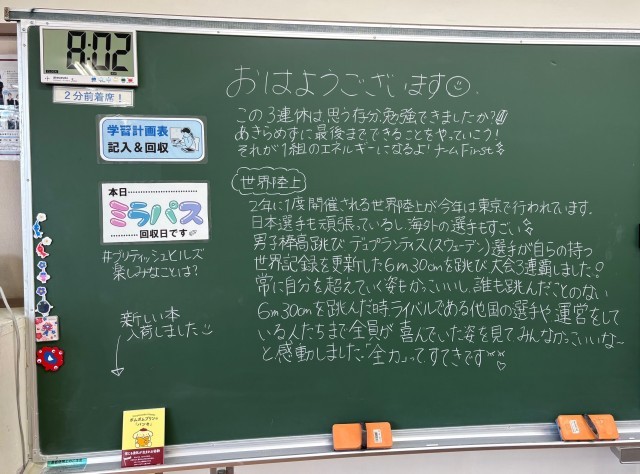 8:02
2分前着席!
学習計画表
記入&回収
本日
ミラパス
回収日です
#ブリティッシュヒルズ
楽しみなことは?
新しい本
入荷しました
ポムポムプリンの
『パンセ』
おはようございます
この3連休は、思う存分、勉強できましたか?
あきらめずに最後までできることをやっていこう!
それが1組のエネルギーになるよ!チームFirst
世界陸上
2年に1度開催される世界陸上が今年は東京で行われています。
日本選手も頑張っているし、海外の選手もすごい
男子棒高跳び デュプランティス(スウェーデン)選手が自らの持つ
世界記録を更新した6m30cmを跳び大会3連覇しました。
常に自分を超えていく姿もかっこいいし、誰も跳んだことのない
6m30cmを跳んだ時、ライバルである他国の選手や運営をして
いる人たちまで全員が喜んでいた姿を見てみんなかっこいいな~
と感動しました。「全力」って、すてきです